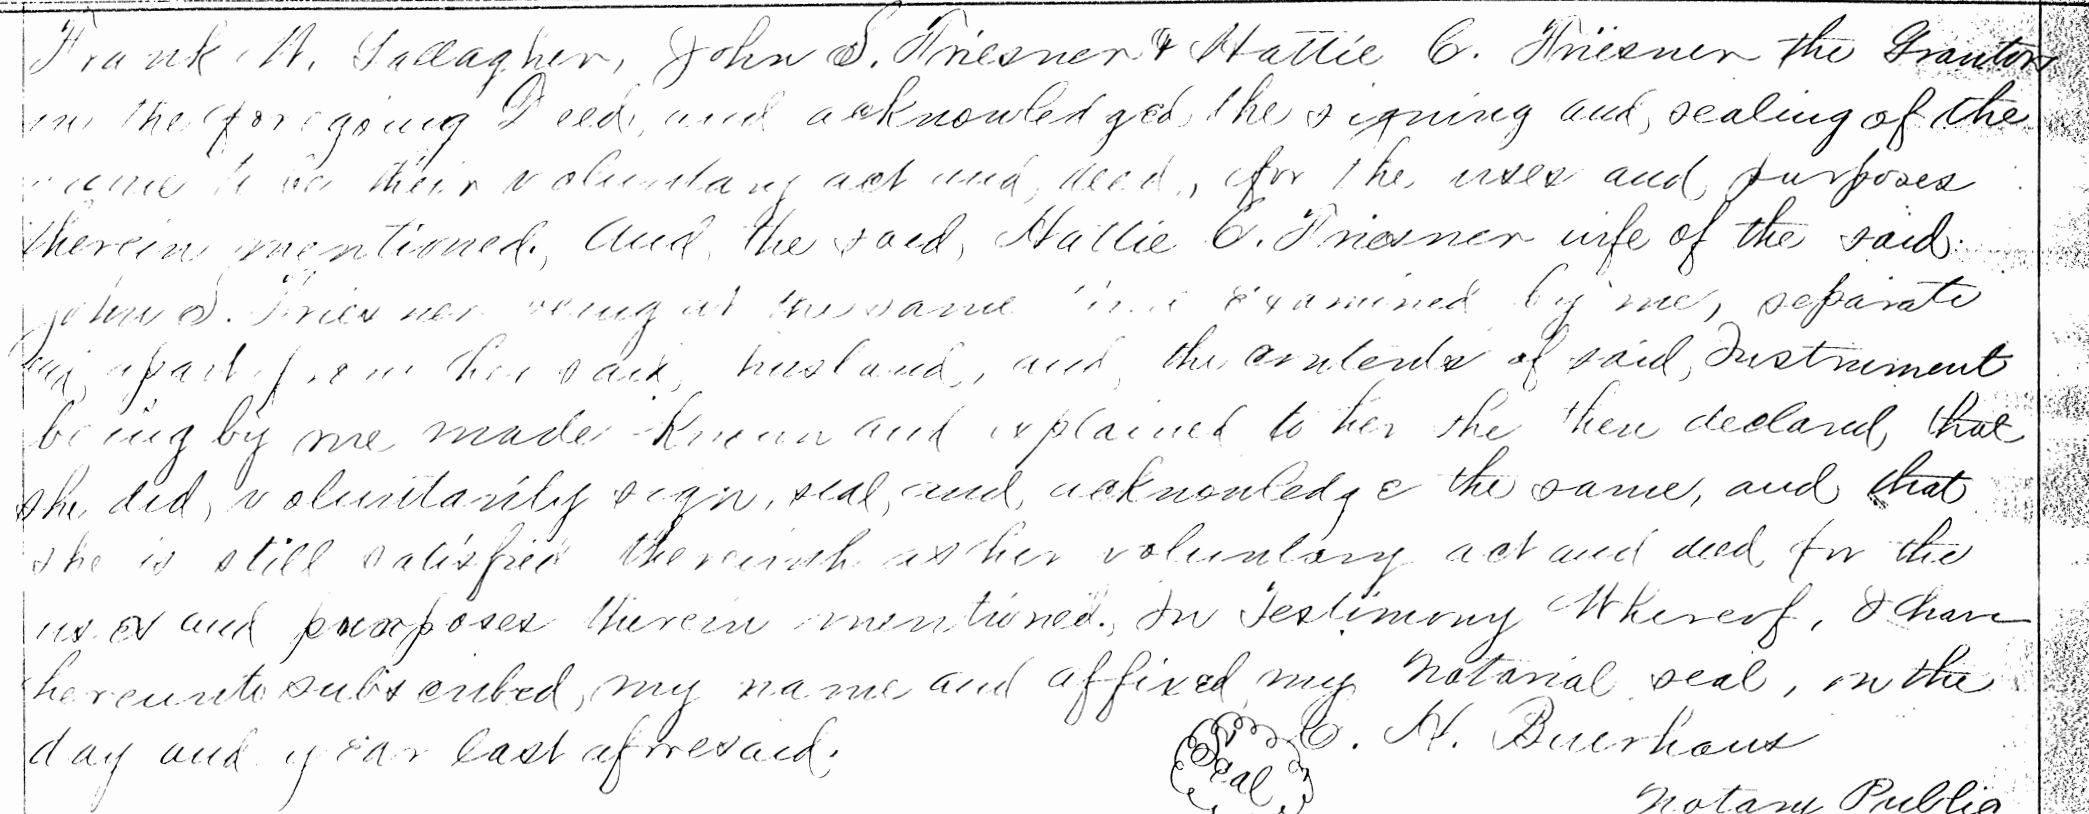 Frank W. Gallagher, John S. Friesner & Hattie C. Friesner the Grantors
in the foregoing Deed, and acknowledged the signing and sealing of the
same to be their voluntary act and deed, for the uses and purposes
therein mentioned. And the said Hattie C. Friesner wife of the said
John S. Friesner being at the same time examined by me, separate
and apart from her said husband, and the contents of said Instrument
being by me made known and explained to her she then declared that
she did voluntarily sign, seal, and acknowledge the same, and that
she is still satisfied therewith as her voluntary act and deed for the
uses and purposes therein mentioned. In Testimony Whereof, I have
hereunto subscribed my name and affixed my Notarial seal, on the
day and year last aforesaid.
Seal
C. H. Buerhaus
Notary Public